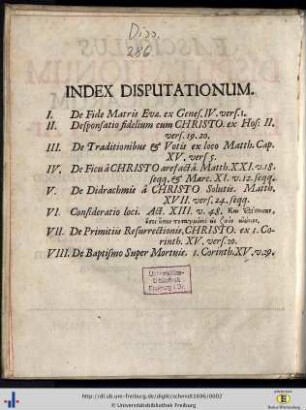 Diss.
286.
INDEX DISPUTATIONUM.
I. De Fide Matris Evæ. ex Genes. IV. vers. 1.
II. Desponsatio fidelium cum CHRISTO. ex Hos: II.
vers. 19. 20.
III. De Traditionibus & Votis ex loco Matth. Cap.
XV. vers 5.
IV. De Ficu â CHRISTO arefactâ. Matth. XXI. v. 18.
seqq. & Marc. XI. v. 12. seqq.
V. De Didrachmis â CHRISTO Solutis. Matth.
XVII. vers. 24. seqq.
VI. Consideratio loci. Act. XIII. v. 48. Καὶ ἐπίστευσαν,
ὅσοι ἦσαν τεταγμένοι εἰς ζωὴν αἰώνιον.
VII. De Primitiis Resurrectionis, CHRISTO. ex 1. Co-
rinth. XV. vers. 20.
VIII. De Baptismo Super Mortuis. 1. Corinth. XV. v. 29.
Universitäts-
Bibliothek
Freiburg i. Br.
http://dl.ub.uni-freiburg.de/diglit/schmidt1696/0002
© Universitätsbibliothek Freiburg